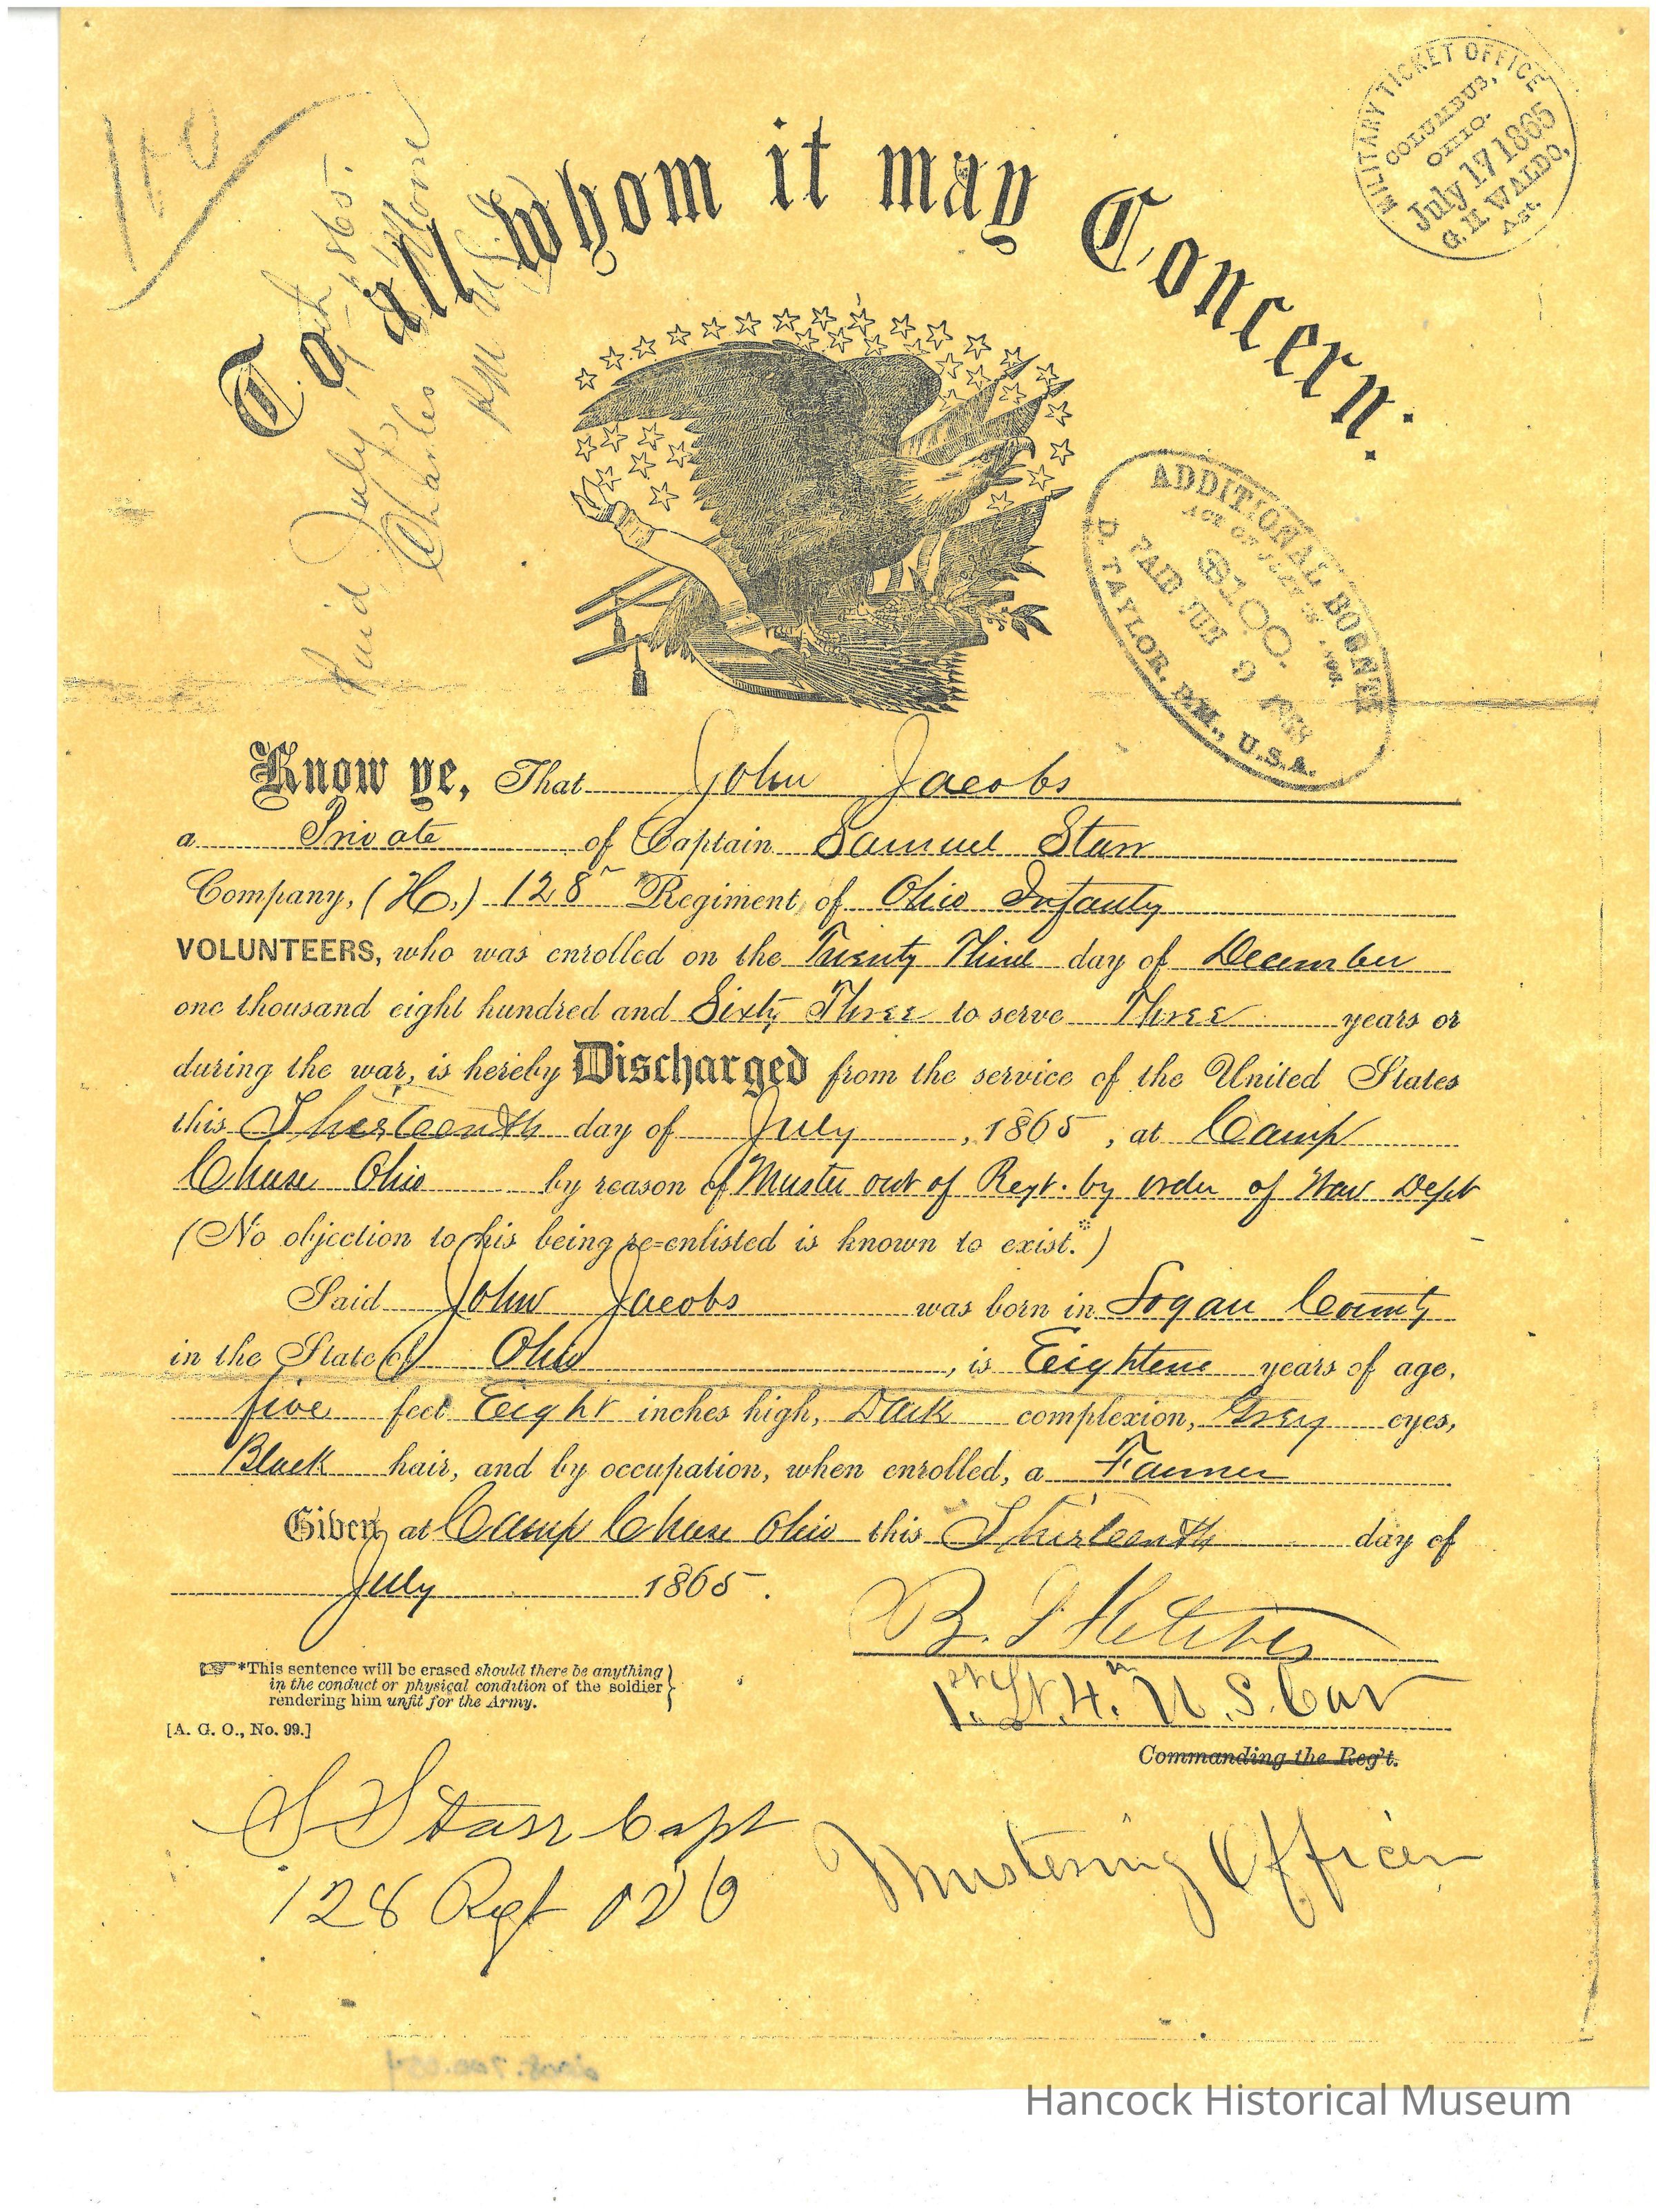 MILITARY TICKET OFFICE
COLUMBUS,
OHIO.
July 17 1865
G. H. WALDO,
Ast.
To all whom it may Concern:
Paid July 17th 1865.
Charles
ADDITIONAL BOUNTY
ACT OF JULY
$100.
PAID JUN 9 1868
D. TAYLOR. P.M., U.S.A.
Know ye, That John Jacobs
a Private of Captain Samuel Starr
Company, (H,) 128 Regiment of Ohio Infanty
VOLUNTEERS, who was enrolled on the Twenty Third day of December
one thousand eight hundred and Sixty Three to serve Three years or
during the war, is hereby Discharged from the service of the United States
this Thirteenth day of July, 1865, at Camp
Chase Ohio by reason of Muster out of Regt. by order of War Dept
(No objection to his being re-enlisted is known to exist.*)
Said John Jacobs was born in Logan County
in the State of Ohio, is Eighteen years of age,
five feet Eight inches high, Dark complexion, Grey eyes,
Black hair, and by occupation, when enrolled, a Farmer
Given at Camp Chase Ohio this Thirteenth day of
July 1865.
1st Lt. 4th U.S. Cav
*This sentence will be erased should there be anything
in the conduct or physical condition of the soldier
rendering him unfit for the Army.
[A. G. O., No. 99.]
Commanding the Reg't.
S Starr Capt
128 Regt OVI
Mustering Officer
Hancock Historical Museum